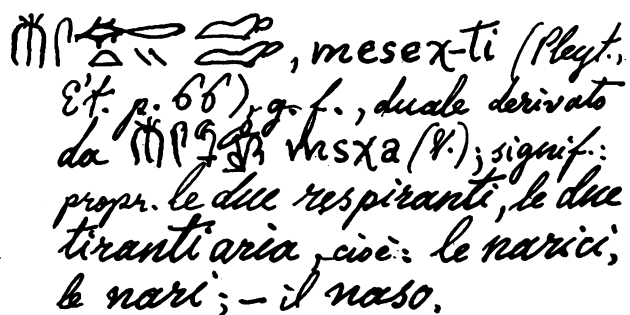 , mesex-ti (Pleyt.,
Ét. p. 66), g. f., duale derivato
da msχa (V.); signif.:
propr. le due respiranti, le due
tiranti aria, cioè: le narici,
le nari; – il naso.